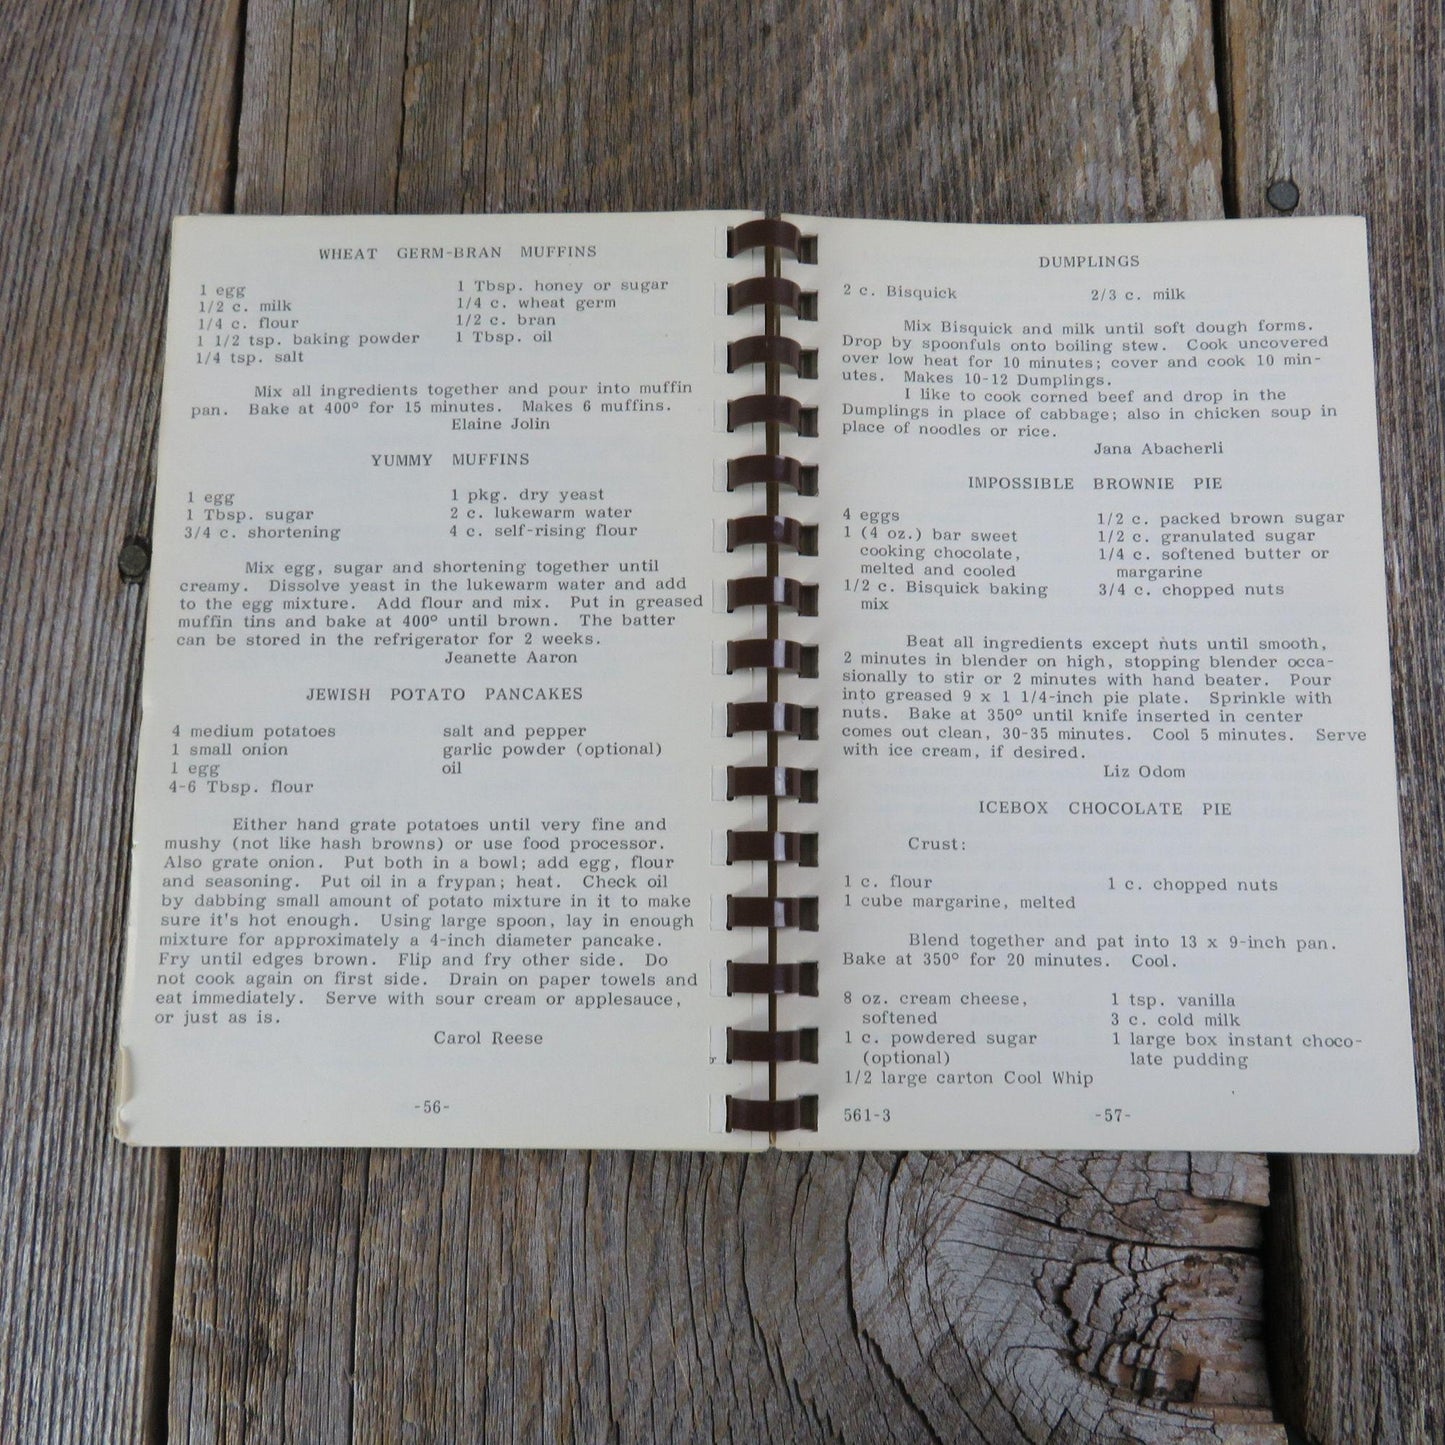 WHEAT GERM-BRAN MUFFINS
1 egg
1/2 c. milk
1/4 c. flour
1 1/2 tsp. baking powder
1/4 tsp. salt
1 Tbsp. honey or sugar
1/4 c. wheat germ
1/2 c. bran
1 Tbsp. oil
Mix all ingredients together and pour into muffin
pan. Bake at 400° for 15 minutes. Makes 6 muffins.
Elaine Jolin
YUMMY MUFFINS
1 egg
1 Tbsp. sugar
3/4 c. shortening
1 pkg. dry yeast
2 c. lukewarm water
4 c. self-rising flour
Mix egg, sugar and shortening together until
creamy. Dissolve yeast in the lukewarm water and add
to the egg mixture. Add flour and mix. Put in greased
muffin tins and bake at 400° until brown. The batter
can be stored in the refrigerator for 2 weeks.
Jeanette Aaron
JEWISH POTATO PANCAKES
4 medium potatoes
1 small onion
1 egg
4-6 Tbsp. flour
salt and pepper
garlic powder (optional)
oil
Either hand grate potatoes until very fine and
mushy (not like hash browns) or use food processor.
Also grate onion. Put both in a bowl; add egg, flour
and seasoning. Put oil in a frypan; heat. Check oil
by dabbing small amount of potato mixture in it to make
sure it's hot enough. Using large spoon, lay in enough
mixture for approximately a 4-inch diameter pancake.
Fry until edges brown. Flip and fry other side. Do
not cook again on first side. Drain on paper towels and
eat immediately. Serve with sour cream or applesauce,
or just as is.
Carol Reese
-56-
DUMPLINGS
2 c. Bisquick
2/3 c. milk
Mix Bisquick and milk until soft dough forms.
Drop by spoonfuls onto boiling stew. Cook uncovered
over low heat for 10 minutes; cover and cook 10 min-
utes. Makes 10-12 Dumplings.
I like to cook corned beef and drop in the
Dumplings in place of cabbage; also in chicken soup in
place of noodles or rice.
Jana Abacherli
IMPOSSIBLE BROWNIE PIE
4 eggs
1 (4 oz.) bar sweet
cooking chocolate,
melted and cooled
1/2 c. Bisquick baking
mix
1/2 c. packed brown sugar
1/2 c. granulated sugar
1/4 c. softened butter or
margarine
3/4 c. chopped nuts
Beat all ingredients except nuts until smooth,
2 minutes in blender on high, stopping blender occa-
sionally to stir or 2 minutes with hand beater. Pour
into greased 9 x 1 1/4-inch pie plate. Sprinkle with
nuts. Bake at 350° until knife inserted in center
comes out clean, 30-35 minutes. Cool 5 minutes. Serve
with ice cream, if desired.
Liz Odom
ICEBOX CHOCOLATE PIE
Crust:
1 c. flour
1 cube margarine, melted
1 c. chopped nuts
Blend together and pat into 13 x 9-inch pan.
Bake at 350° for 20 minutes. Cool.
8 oz. cream cheese,
softened
1 c. powdered sugar
(optional)
1/2 large carton Cool Whip
1 tsp. vanilla
3 c. cold milk
1 large box instant choco-
late pudding
561-3
-57-